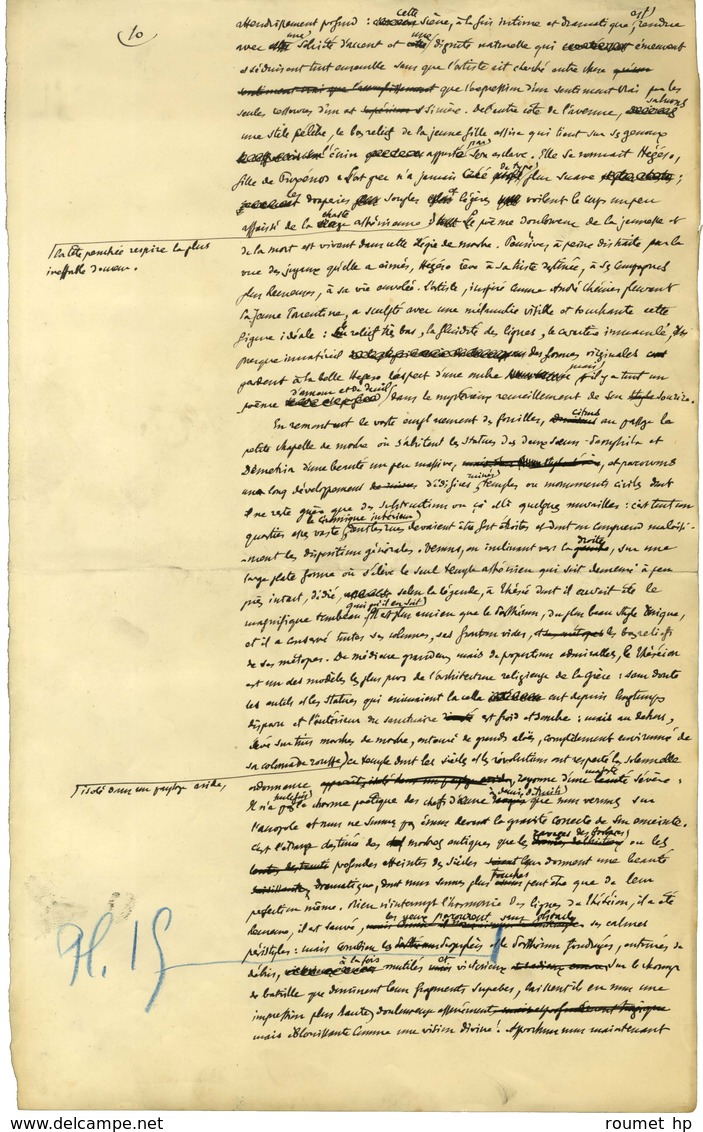 10
cette
est
attendrissement profond : scène, à la fois intime et dramatique, rendue
une une
avec sobriété d'accent et dignité naturelle qui émeuvent
et séduisent tout ensemble sans que l'artiste ait cherché autre chose
que l'expression d'un sentiment vrai par les
seules ressources d'un art et sincère. De l'autre côté de l'avenue,
une stèle célèbre, le bas relief de la jeune fille assise qui tient sur ses genoux
l'écrin apporté par son esclave. Elle se nommait Hégéso,
fille de Proxénos. L'art grec n'a jamais créé de type plus suave ;
les draperies souples et légères voilent le corps un peu
affaissé de la chaste athénienne. Le poème douloureux de la jeunesse et
la tête penchée respire la plus
ineffable douceur.
de la mort est vivant dans cette élégie de marbre. Pensive, à peine distraite par la
vue des joyaux qu'elle a aimés, Hégéso rêve à sa triste destinée, à ses compagnes
plus heureuses, à sa vie envolée. L'artiste, inspiré comme André Chénier pleurant
la jeune Tarentine, a sculpté avec une mélancolie visible et touchante cette
figure idéale : relief très bas, la fluidité des lignes, le caractère immaculé,
presque immatériel des formes originales
gardent à la belle Hégéso l'aspect d'une ombre mais il y a tout un
d'amour et de deuil
poème dans le mystérieux recueillement de son sourire.
En remontant le vaste emplacement des fouilles, citons au passage la
petite chapelle de marbre où s'abritent les statues des deux sœurs Pamphila et
Démétria d'une beauté un peu massive, et parcourons
un long développement d'édifices ruinés, temples, ou monuments civils dont
il ne reste guère que des substructions ou çà et là quelques murailles : c'est tout un
le Céramique intérieur
quartier assez vaste dont les rues devaient être fort étroites et dont on comprend malaisé-
ment les dispositions générales. Venons, en inclinant vers la droite, sur une
large plate forme où s'élève le seul temple athénien qui soit demeuré à peu
près intact, dédié, selon la légende, à Thésée dont il aurait été le
quoi qu'il en soit
magnifique tombeau. Il est plus ancien que le Parthénon, du plus beau style dorique,
et il a conservé toutes ses colonnes, ses frontons vides, les bas reliefs
de ses métopes. De médiocre grandeur mais de proportions admirables, le Théséion
est un des modèles les plus purs de l'architecture religieuse de la Grèce : sans doute
les autels et les statues qui animaient la cella ont depuis longtemps
disparu et l'intérieur du sanctuaire est froid et sombre : mais au dehors,
élevé sur trois marches de marbre, entouré de grands aloès, complètement environné de
sa colonnade rousse, ce temple dont les siècles et les révolutions ont respecté la solennelle
isolé dans un paysage aride,
ordonnance rayonne d'une majesté sévère :
Il n'a pas toutefois le charme poétique des chefs d'œuvre que nous verrons sur
l'acropole et nous ne sommes pas émus devant la gravité correcte de son enceinte.
C'est l'étrange destinée des marbres antiques que les ravages des barbares ou les
profondes atteintes des siècles leur donnent une beauté
dramatique, dont nous sommes plus touchés peut être que de leur
perfection même. Rien n'interrompt l'harmonie des lignes du Théséion, il a été
heureux, il est sauvé, les yeux parcourent sans obstacle ses calmes
péristyles : mais combien les Propylées et le Parthénon foudroyés, entourés de
à la fois et
débris, mutilés victorieux sur le champ
de bataille que dominent leurs fragments superbes, laissent-ils en nous une
impression plus haute, douloureuse assurément,
mais éblouissante comme une vision divine ! Approchons nous maintenant
roumet hp